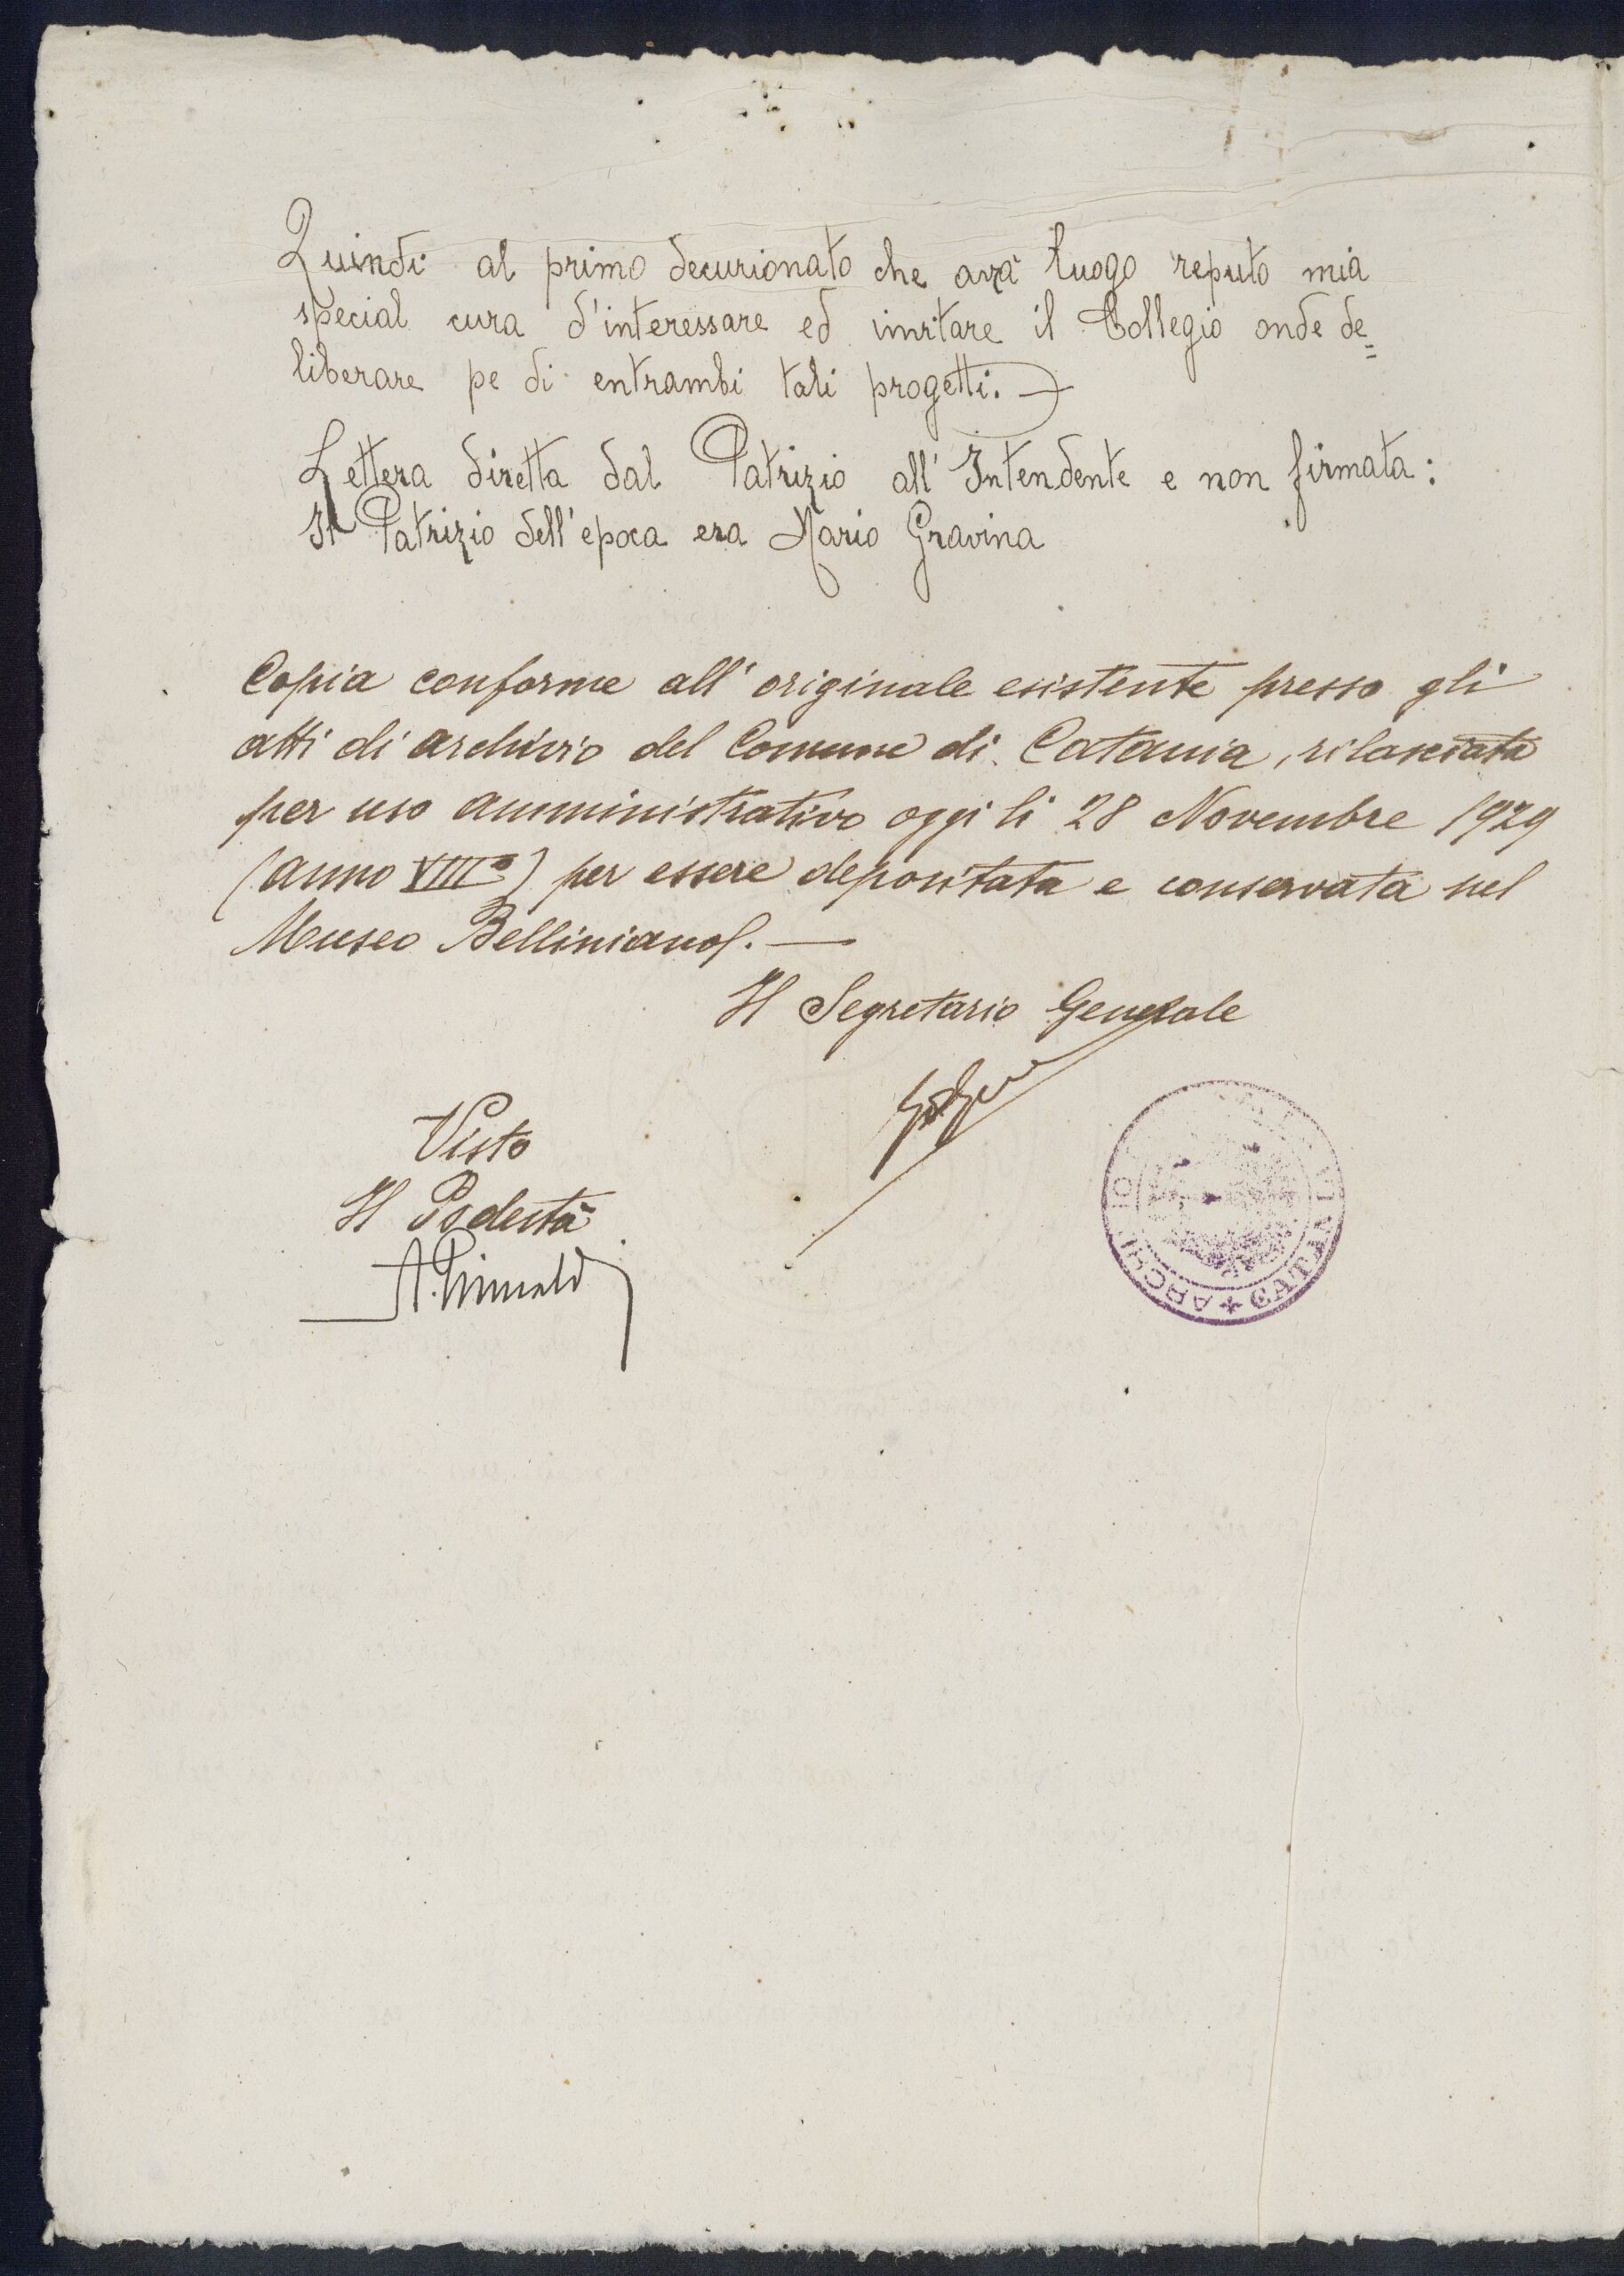 Quindi al primo decurionato che avrà luogo reputo mia
special cura d'interessare ed invitare il Collegio onde de=
liberare pe di entrambi tali progetti.
Lettera diretta dal Patrizio all' Intendente e non firmata:
Il Patrizio dell'epoca era Mario Gravina
Copia conforme all' originale esistente presso gli
atti di archivio del Comune di Catania, rilasciata
per uso amministrativo oggi li 28 Novembre 1929
(anno VIII°) per essere depositata e conservata nel
Museo Belliniano.
Il Segretario Generale
Visto
Il Podestà
ARCHIVIO
CATANIA